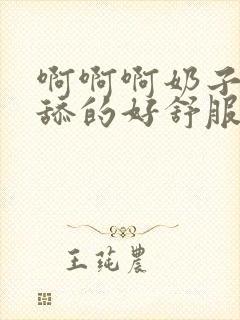 啊啊啊奶子
舔的好舒服
王莼农